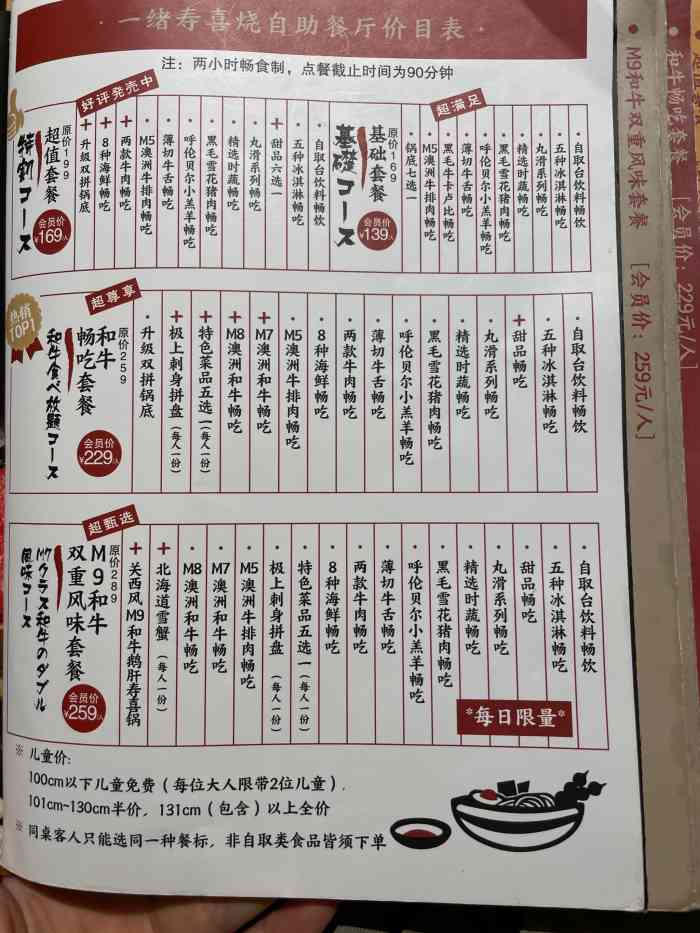 ·一绪寿喜烧自助餐厅价目表·
注：两小时畅食制，点餐截止时间为90分钟
好评発売中
コース
超值套餐
原价199
会员价
¥169/人
+升级双拼锅底
+8种海鲜畅吃
+两款牛肉畅吃
·M5澳洲牛排肉畅吃
·薄切牛舌畅吃
·呼伦贝尔小羔羊畅吃
·黑毛雪花猪肉畅吃
·精选时蔬畅吃
·丸滑系列畅吃
+甜品六选
·五种冰淇淋畅吃
·自取台饮料畅饮
超满足
基礎コース
基础套餐
原价169
会员价
¥139/人
·锅底七选一
·M5澳洲牛排肉畅吃
·黑毛牛卡卢比畅吃
·薄切牛舌畅吃
·呼伦贝尔小羔羊畅吃
·黑毛雪花猪肉畅吃
·精选时蔬畅吃
·丸滑系列畅吃
·五种冰淇淋畅吃
·自取台饮料畅饮
热销
TOP1
超尊享
和牛食べ放題コース
和牛
畅吃套餐
原价259
会员价
¥229/人
·升级双拼锅底
+极上刺身拼盘（每人一份）
+特色菜品五选一（每人一份）
+M8澳洲和牛畅吃
+M7澳洲和牛畅吃
·M5澳洲牛排肉畅吃
·8种海鲜畅吃
·两款牛肉畅吃
·薄切牛舌畅吃
·呼伦贝尔小羔羊畅吃
·黑毛雪花猪肉畅吃
·精选时蔬畅吃
·丸滑系列畅吃
+甜品畅吃
·五种冰淇淋畅吃
·自取台饮料畅饮
超甄选
M9クラス和牛のダブル
風味コース
M9和牛
双重风味套餐
原价289
会员价
¥259/人
+关西风M9和牛鹅肝寿喜锅
+北海道雪蟹（每人一份）
·M8澳洲和牛畅吃
·M7澳洲和牛畅吃
·M5澳洲牛排肉畅吃
·极上刺身拼盘（每人一份）
·特色菜品五选一（每人一份）
·8种海鲜畅吃
·两款牛肉畅吃
·薄切牛舌畅吃
·呼伦贝尔小羔羊畅吃
·黑毛雪花猪肉畅吃
·精选时蔬畅吃
·丸滑系列畅吃
·甜品畅吃
·五种冰淇淋畅吃
·自取台饮料畅饮
*每日限量*
※ 儿童价:
100cm以下儿童免费（每位大人限带2位儿童），
101cm~130cm半价，131cm（包含）以上全价
※ 同桌客人只能选同一种餐标，非自取类食品皆须下单
·M9和牛双重风味套餐 [会员价：259元/人]
·和牛畅吃套餐 [会员价：229元/人]